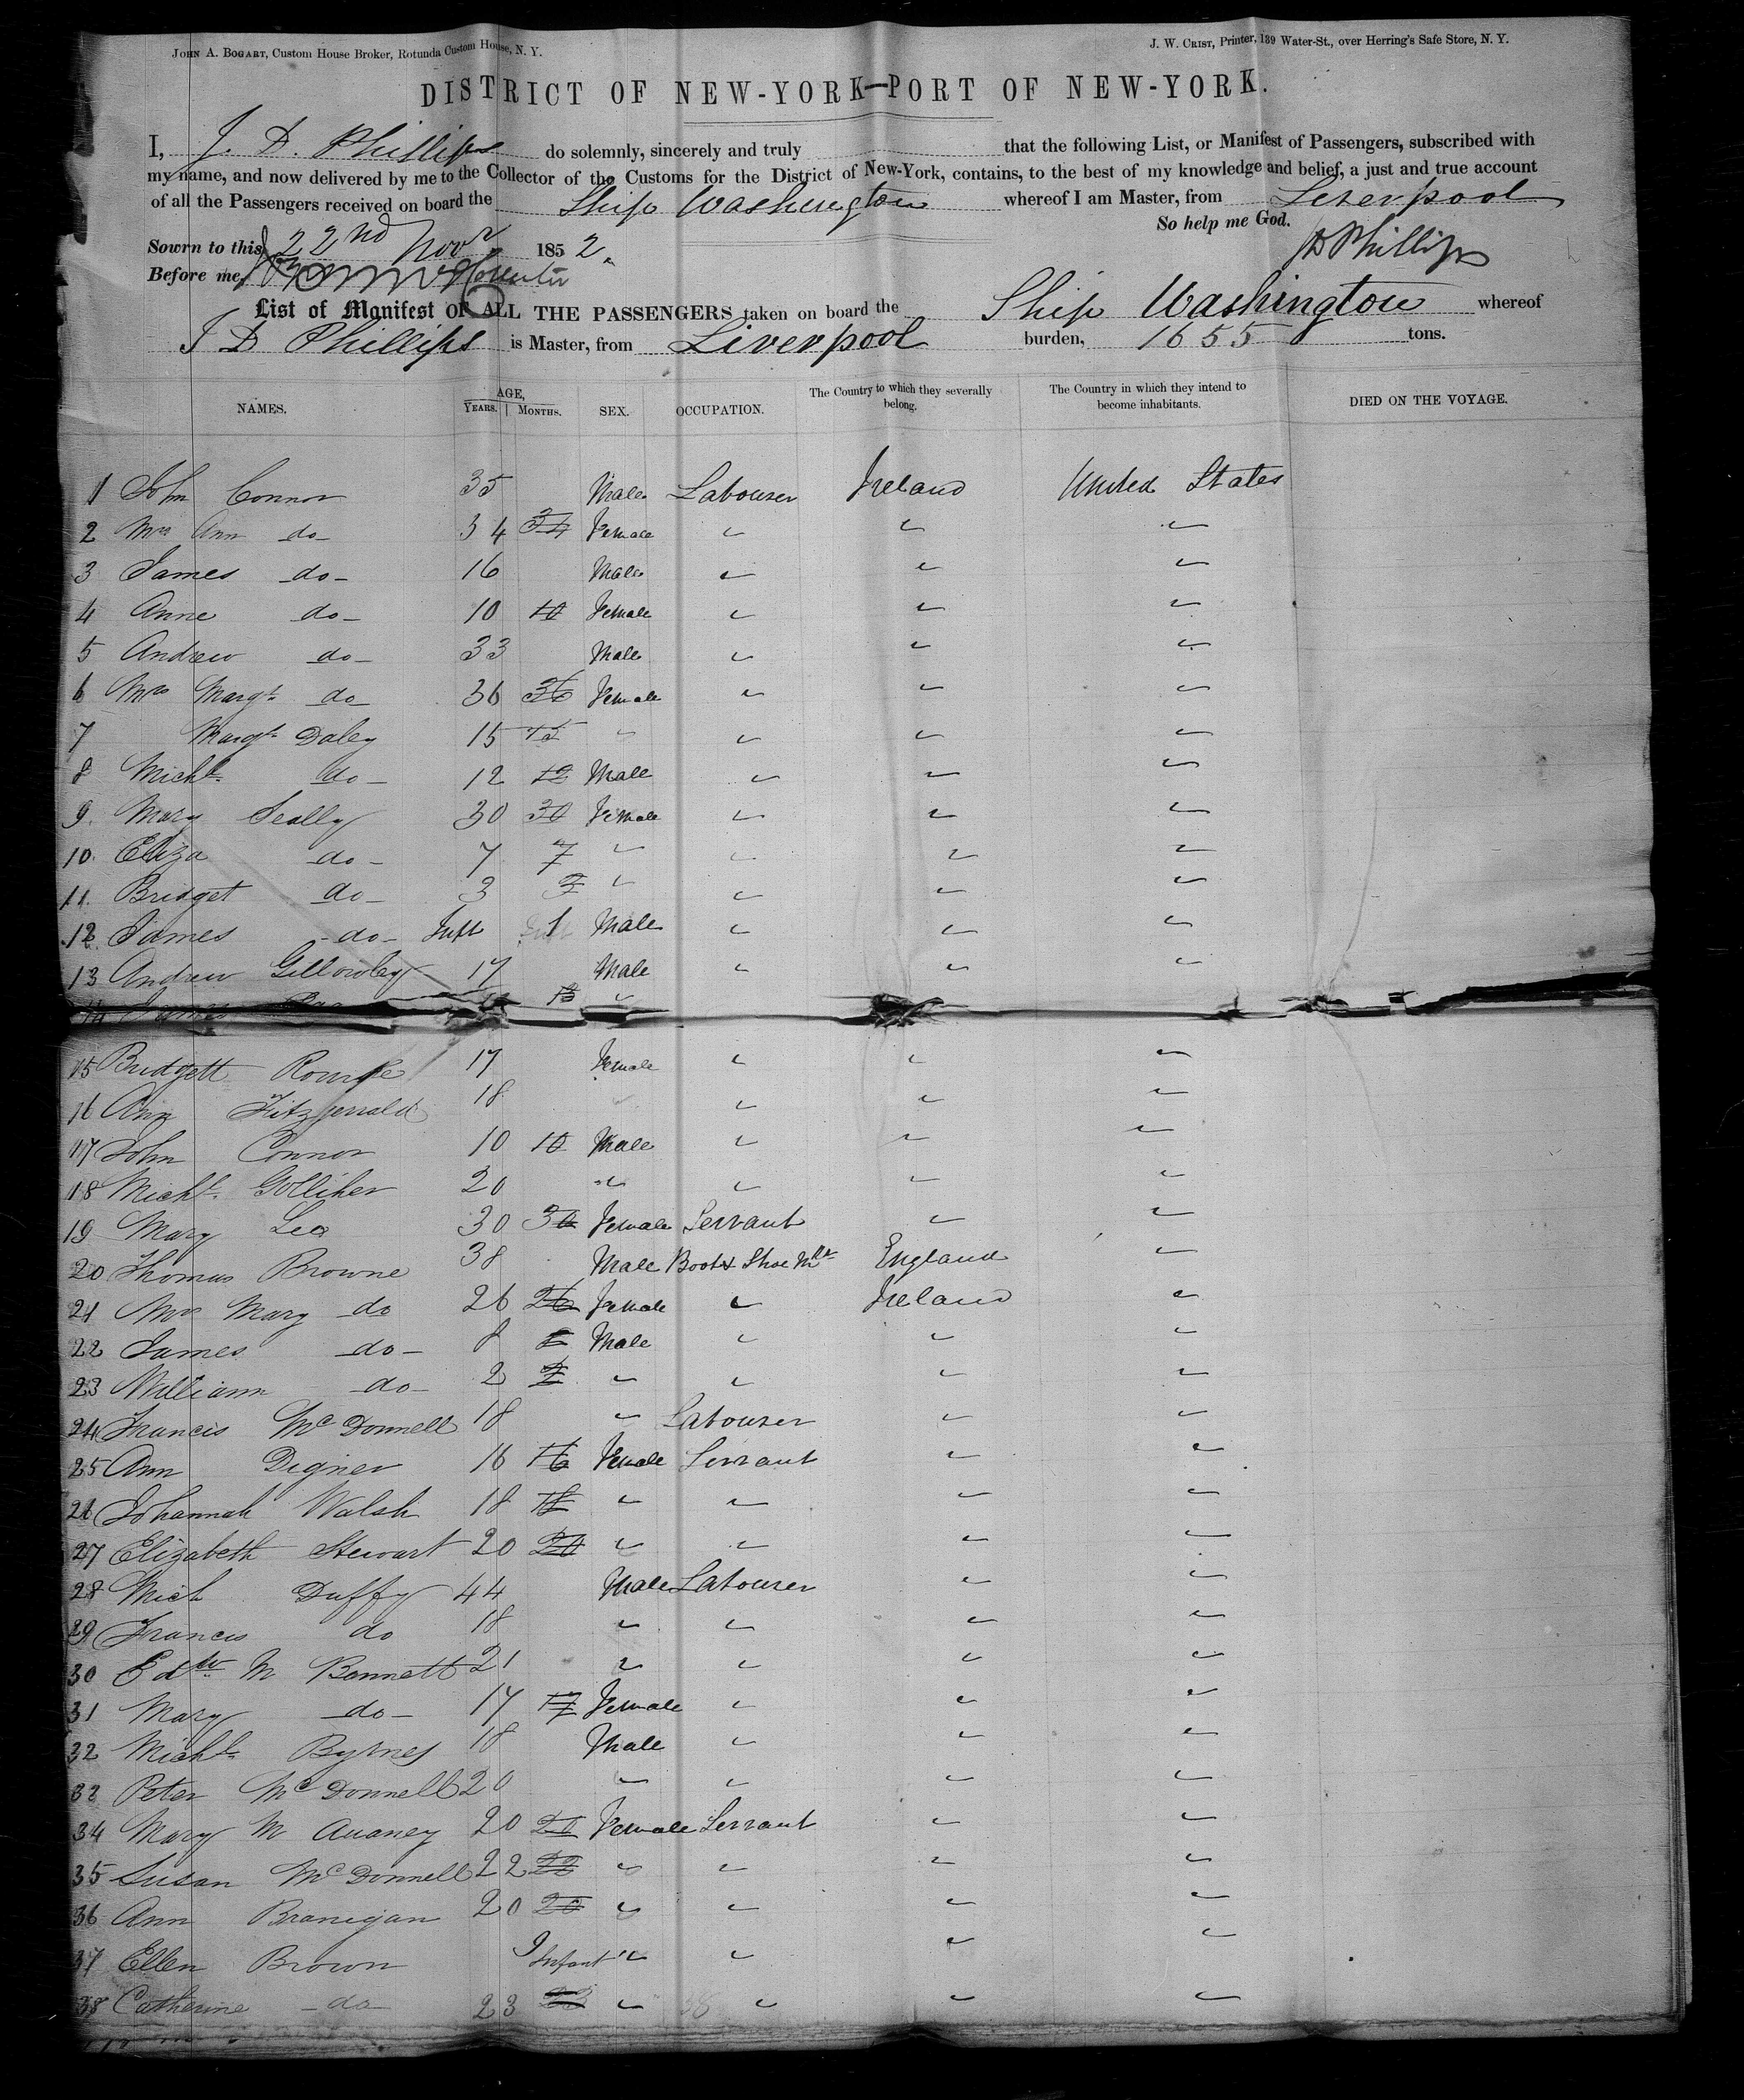 JOHN A. BOGART, Custom House Broker, Rotunda Custom House, N. Y.
J. W. CRIST, Printer, 189 Water-St., over Herring's Safe Store, N. Y.
DISTRICT OF NEW-YORK—PORT OF NEW-YORK.
I, J. D. Phillips do solemnly, sincerely and truly that the following List, or Manifest of Passengers, subscribed with
my name, and now delivered by me to the Collector of the Customs for the District of New-York, contains, to the best of my knowledge and belief, a just and true account
of all the Passengers received on board the Ship Washington whereof I am Master, from Liverpool
So help me God.
Sowrn to this 22nd Novr 1852.
JD Phillips
Before me,
List of Manifest OF ALL THE PASSENGERS taken on board the Ship Washington whereof
J D Phillips is Master, from Liverpool burden, 1655 tons.
NAMES. AGE, YEARS. MONTHS. SEX. OCCUPATION. The Country to which they severally belong. The Country in which they intend to become inhabitants. DIED ON THE VOYAGE.
1 John Connor 35 Male Labourer Ireland United States
2 Mrs Ann do 34 34 Female " " "
3 James do 16 Male " " "
4 Anne do 10 10 Female " " "
5 Andrew do 33 Male " " "
6 Mrs Margt do 36 36 Female " " "
7 Margt Daley 15 15 " " " "
8 Michl do 12 12 Male " " "
9. Mary Scally 30 30 Female " " "
10. Eliza do 7 7 " " " "
11. Bridget do 3 3 " " " "
12. James do Inft 1 Male " " "
13 Andrew Gillowley 17 Male " " "
14 James "
15 Bridgett Rourke 17 Female " " "
16 Ann Fitzgerrald 18 " " " "
17 John Connor 10 10 Male " " "
18 Michl. Golliher 20 " " " "
19 Mary Lea 30 30 Female Servant " "
20 Thomas Browne 38 Male Boot & Shoe Mkr England "
21 Mrs Mary do 26 26 Female " Ireland "
22 James do 8 8 Male " " "
23 William do 2 2 " " " "
24 Francis McDonnell 18 " Labourer " "
25 Ann Digner 16 16 Female Servant " "
26 Johannah Walsh 18 18 " " " "
27 Elizabeth Stewart 20 20 " " " "
28 Mich Duffy 44 Male Labourer " "
29 Francis do 18 " " " "
30 Edw M Bennett 21 " " " "
31 Mary do 17 17 Female " " "
32 Michl Byrnes 18 Male " " "
33 Peter McDonnell 20 " " " "
34 Mary M Auaney 20 20 Female Servant " "
35 Susan McDonnell 22 22 " " " "
36 Ann Branigan 20 20 " " " "
37 Ellen Brown 9 Infant " " " "
38 Catherine do 23 23 " " " "